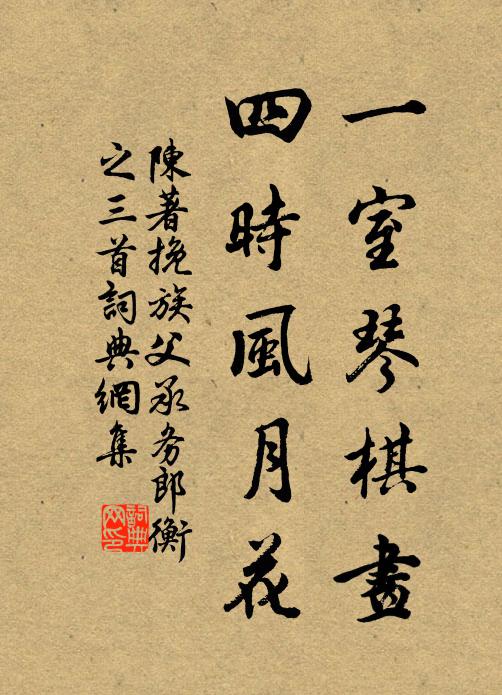 一室琴棋畫
四時風月花
陳著挽族父承务郎衡
之三首詞典網集
詞典
网印